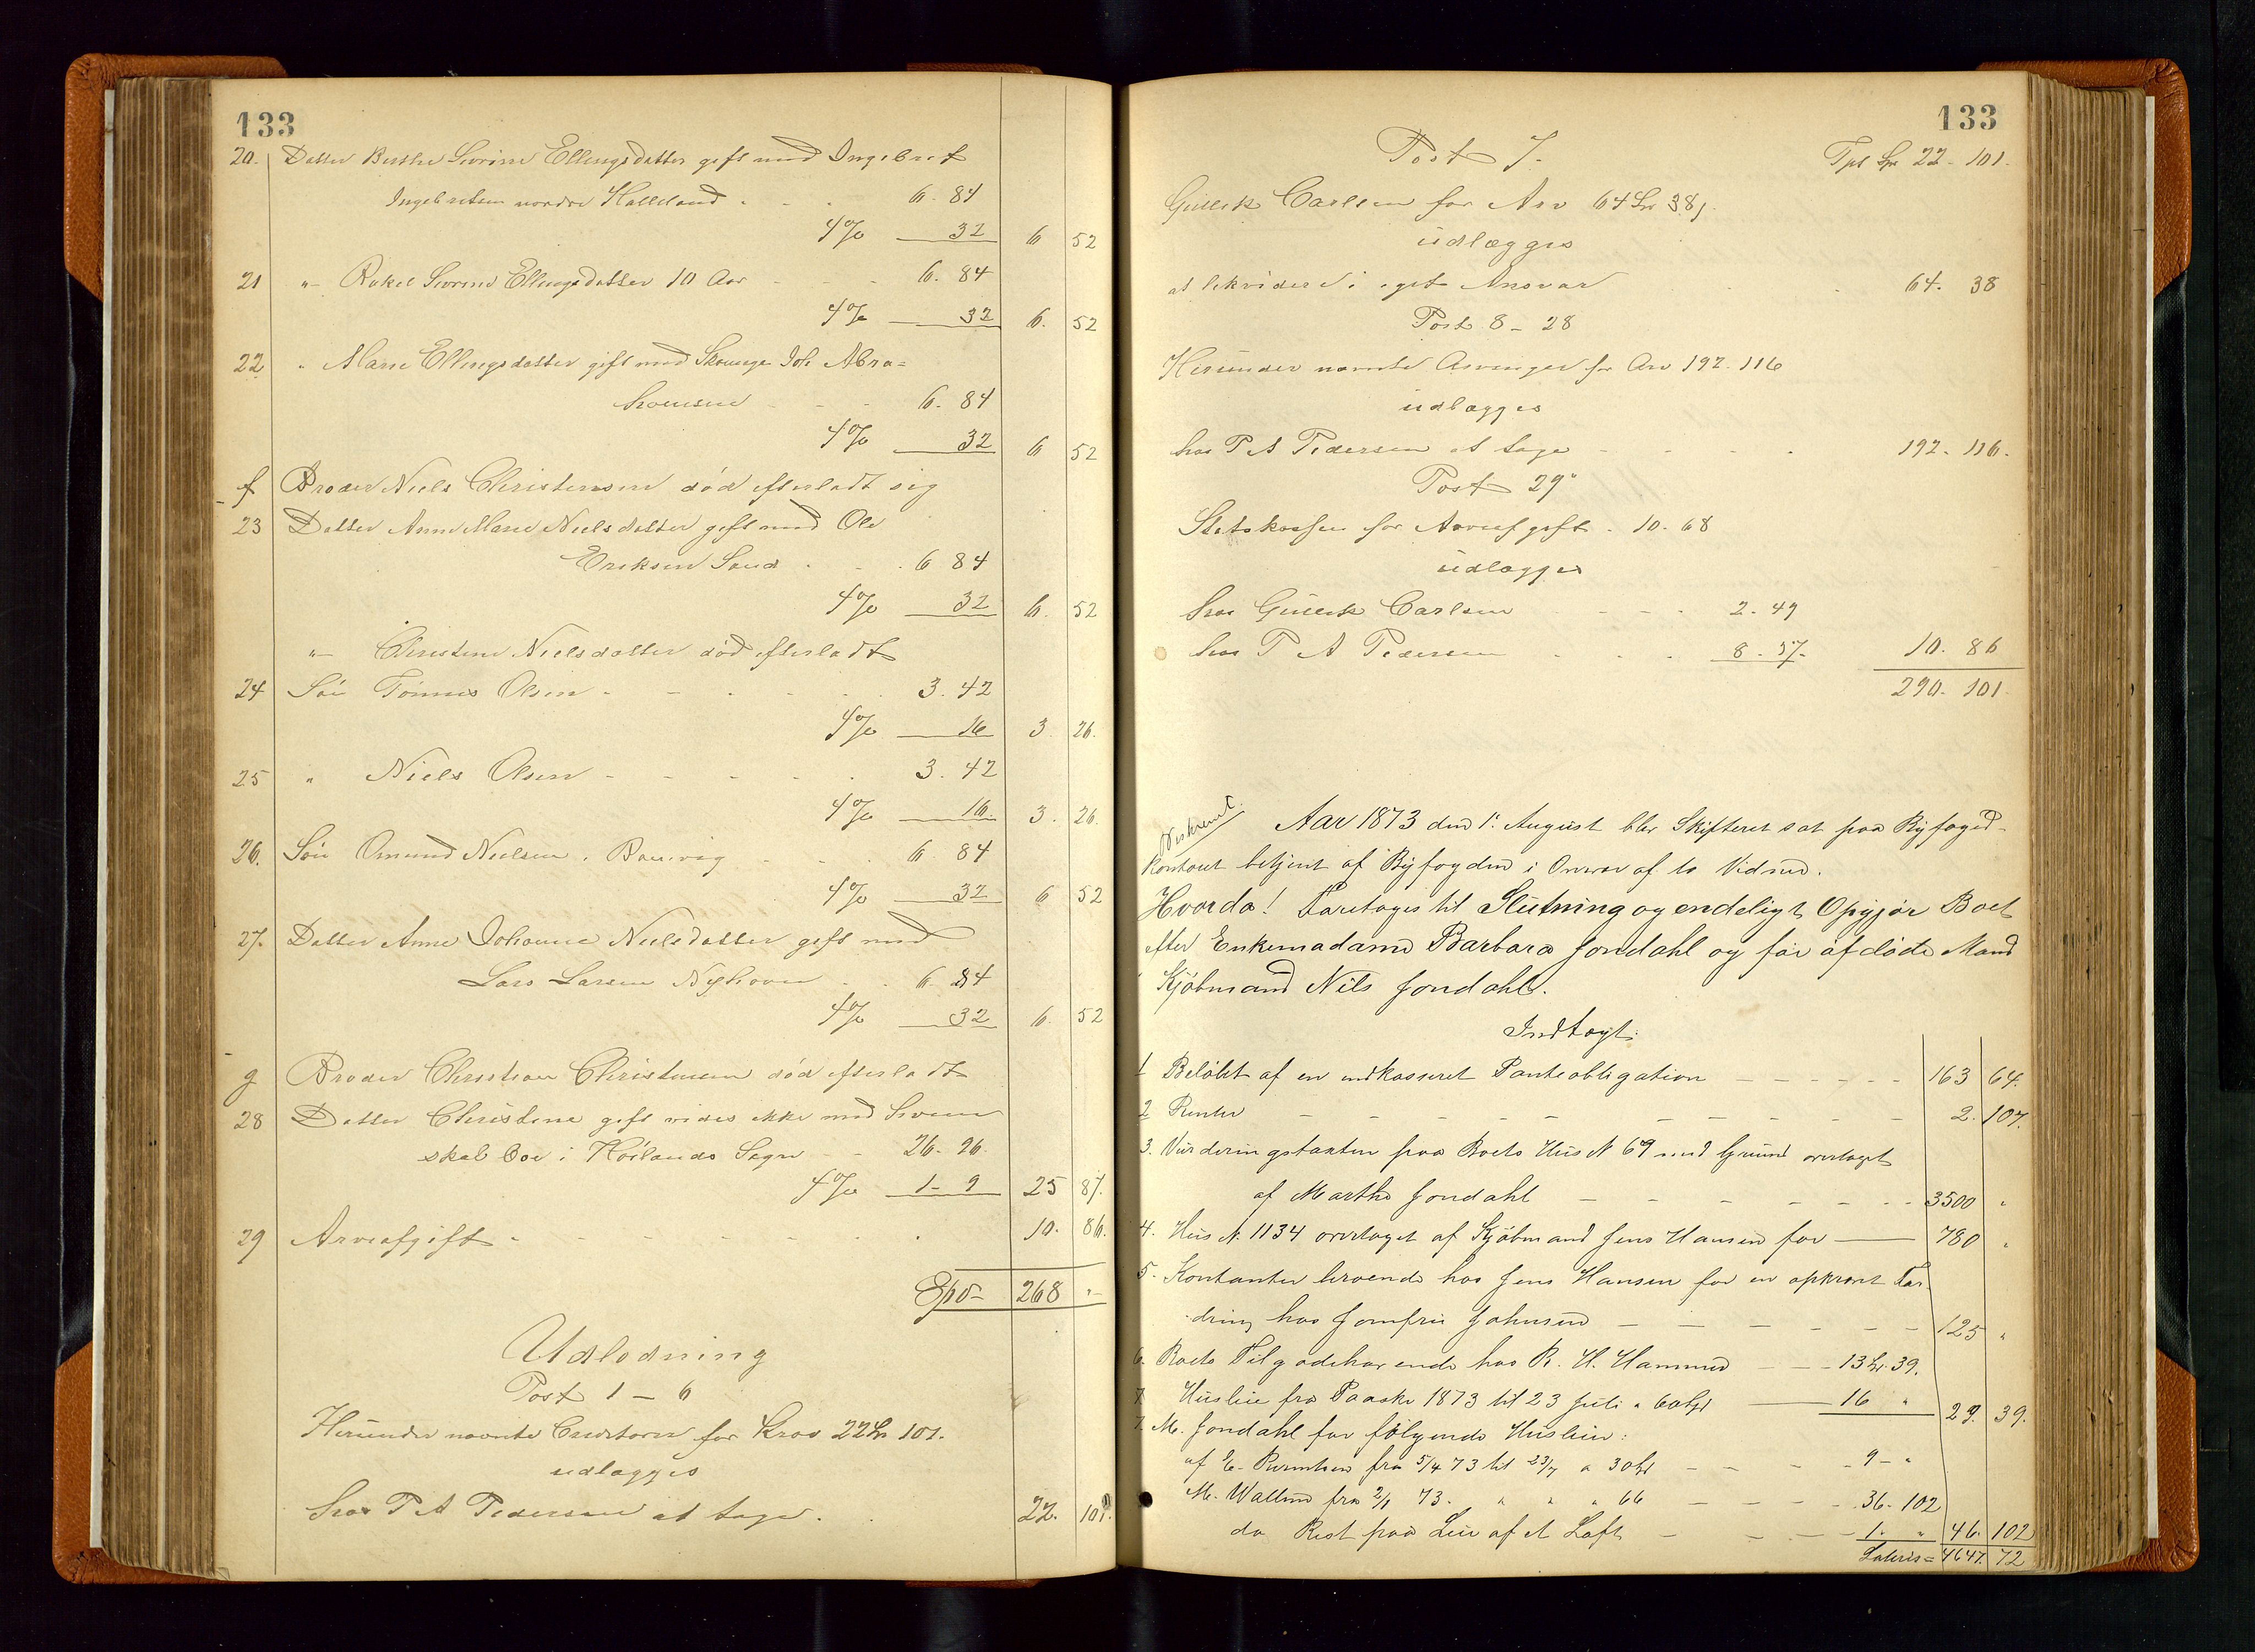 133
20. Datter Berthe Severine Ellingsdatter gift med Ingebret
Ingebretsen nordre Halleland - - 6. 84
4% 32 6 52
21 "- Rakel Severine Ellingsdatter 10 Aar - - - 6. 84
4% 32 6. 52
22 " Marie Ellingsdatter gift med Joh Abra=
hamsen - - - 6. 84
4% 32 6 52
f Broder Niels Christensen død efterladt sig
23 Datter Anne Marie Nielsdatter gift med Ole
Eriksen Sand - - 6 84
4% 32 6. 52
"- Christine Nielsdatter død efterladt
24 Søn Tönnes Olsen - - - - 3. 42
4% 16 3. 26.
25 " Niels Olsen - - - - 3. 42
4% 16. 3. 26.
26. Søn Omund Nielsen i - - 6. 84
4% 32 6 52
27. Datter Anne Johanne Nielsdatter gift med
Lars Larsen - - 6. 84
4% 32 6. 52
g Broder Christian Christensen død efterladt
28 Datter Christine gift vides ikke med hvem
skal boe i Höilands Sogn - - 26. 96.
4% 1- 9 25 87.
29 Arveafgift - - - - - - 10. 86.
Spd= 268 "-
Udlodning
Post 1 - 6
Herunder nævnte Creditorer for Krav 22 Sp 101.
udlægges
hos P A Pedersen at tage - - 22. 101.
133
Post 7. Tpt Sp 22 - 101.
Gullek Carlsen for Arv 64 Sp 38 s.
udlægges
at likvidere i eget Ansvar - - 64. 38
Post 8 - 28
Herunder nævnte Arvinger for Arv 192. 116
udlægges
hos P A Pedersen at tage - - - - 192. 116.
Post 29.
Statskassen for Arveafgift - 10. 68
udlægges
hos Gullek Carlsen - - - - 2. 49
hos P A Pedersen - - - - 8. 37. 10. 86
290. 101.
Beskrevet.
Aar 1873 den 1. August blev Skifteret sat paa Byfoged-
kontoret betjent af Byfogden i Overvær af to Vidner.
Hvorda! Foretages til Slutning og endeligt Opgjør Boet
efter Enkemadame Barbara Jondahl og før afdøde Mand
Kjöbmand Nils Jondahl.
Indtægt:
1 Beløbet af en indkasseret Panteobligation - - - - - 163 64.
2 Renter - - - - - - - - - 2. 107.
3. Vurderingstaxten paa Boets Hus N 69 med Grund overtaget
af Marthe Jondahl - - - - - - - 3500 "
4. Hus N. 1134 overtaget af Kjöbmand Jens Hansen for — 780 "
5. Kontanter beroende hos Jens Hansen for en opkrævet For-
dring hos Jomfru Johnsen - - - - - - - 125 "
6. Boets Tilgodehavende hos R. H. Hammer - - - 13 Sp. 39.
7 Husleie fra Paaske 1873 til 23 Juli a 60 Spd — 16 " 29. 39.
7. M. Jondahl for følgende Husleier:
af E. Berentsen fra 5/4 73 til 23/7 a 30 Spd - - - - 9 - "
M. Wallem fra 2/1 73. " " " 66 - - - - 36. 102
do Rest paa Leie af et Loft - - - - 1. " 46. 102
Lateris = 4647. 72